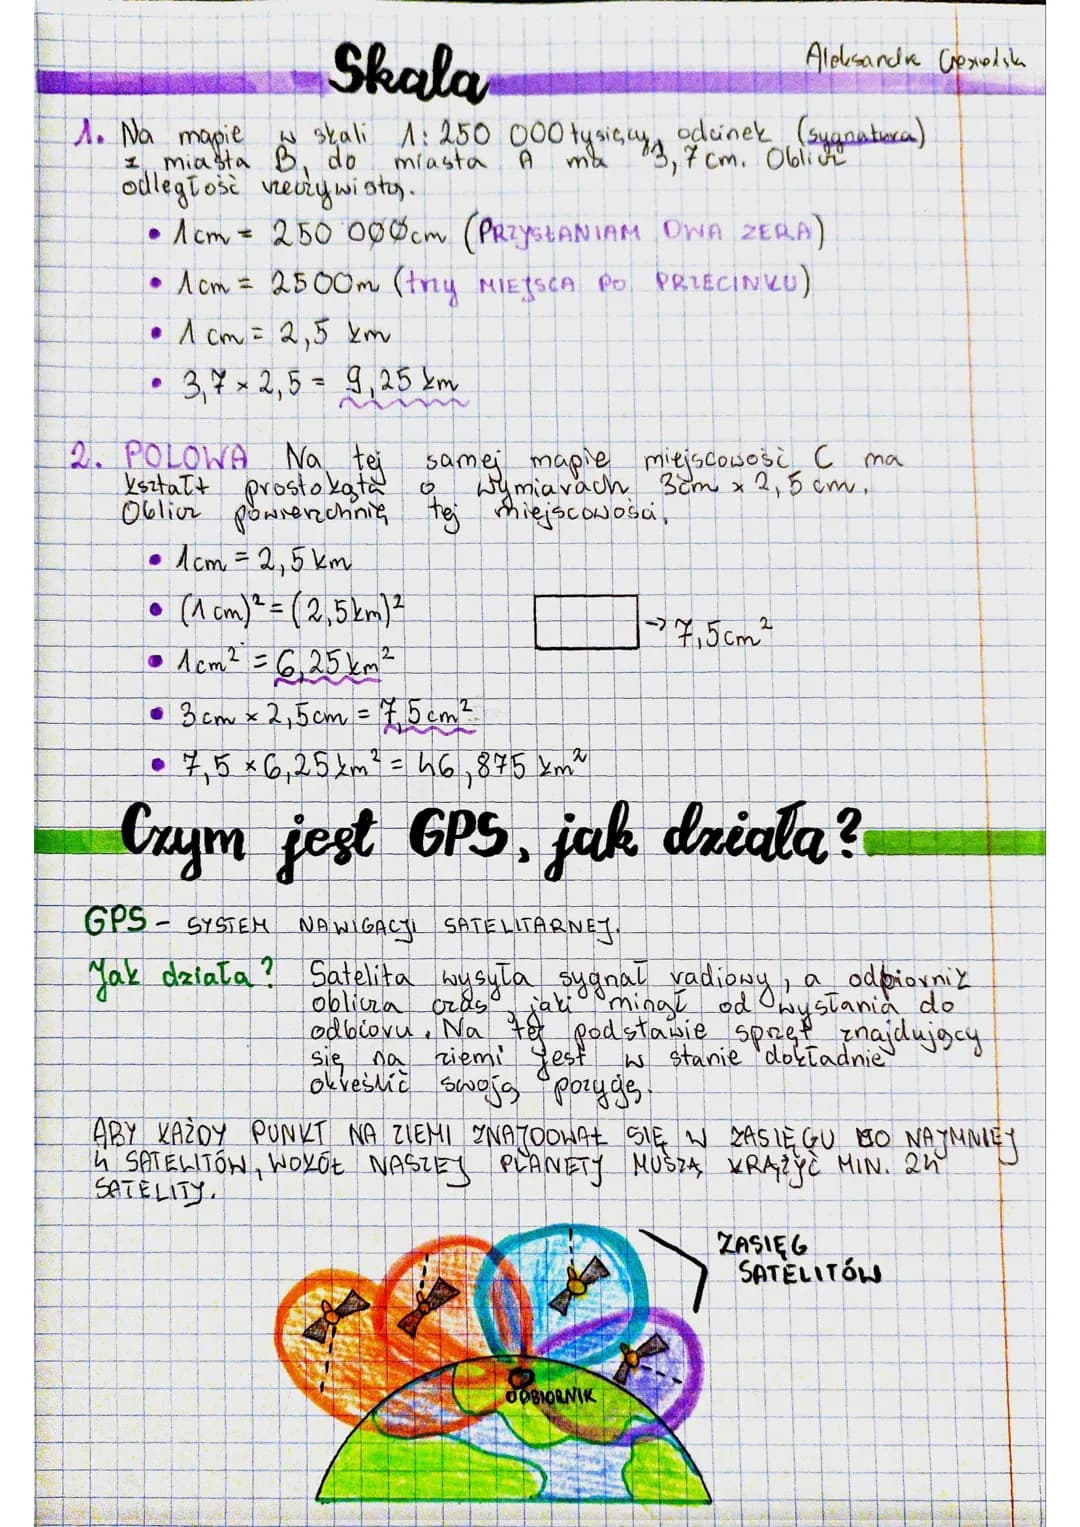 Skala
Aleksandra
1. Na mapie w skali 1:250 000 tysięcy, odcinek (sygnatura)
z miasta B, do miasta A ma 3,7cm. Oblicz
odległość rzeczywistą.
• 1cm = 250 000cm (PRZYSŁANIAM DWA ZERA)
• 1cm = 2500m (trzy MIEJSCA PO PRZECINKU)
• 1cm = 2,5 km
• 3,7 × 2,5 = 9,25 km
2. POLOWA Na tej samej mapie miejscowość C ma
kształt prostokąta o wymiarach 3cm × 2,5 cm.
Oblicz powierzchnię tej miejscowości.
• 1cm = 2,5 km
• (1cm)² = (2,5km)²
• 1cm² = 6,25 km²
→ 7,5cm²
• 3cm × 2,5cm = 7,5cm²
• 7,5 × 6,25km² = 46,875 km²
Czym jest GPS, jak działa?
GPS - SYSTEM NAWIGACJI SATELITARNEJ.
Jak działa? Satelita wysyła sygnał radiowy, a odbiornik
oblicza czas jaki minął od wysłania do
odbioru. Na tej podstawie sprzęt znajdujący
się na ziemi jest w stanie dokładnie
określić swoją pozycję.
ABY KAŻDY PUNKT NA ZIEMI ZNAJDOWAŁ SIĘ W ZASIĘGU CO NAJMNIEJ
4 SATELITÓW, WOKÓŁ NASZEJ PLANETY MUSZĄ KRĄŻYĆ MIN. 24
SATELITY.
ZASIĘG
SATELITÓW
ODBIORNIK